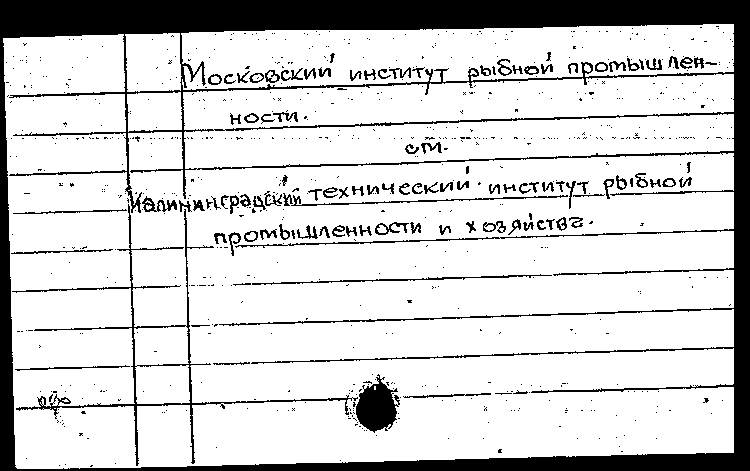 Московский институт рыбной промышлен-
ности.
см.
Калининградский технический институт рыбной
промышленности и хозяйства.